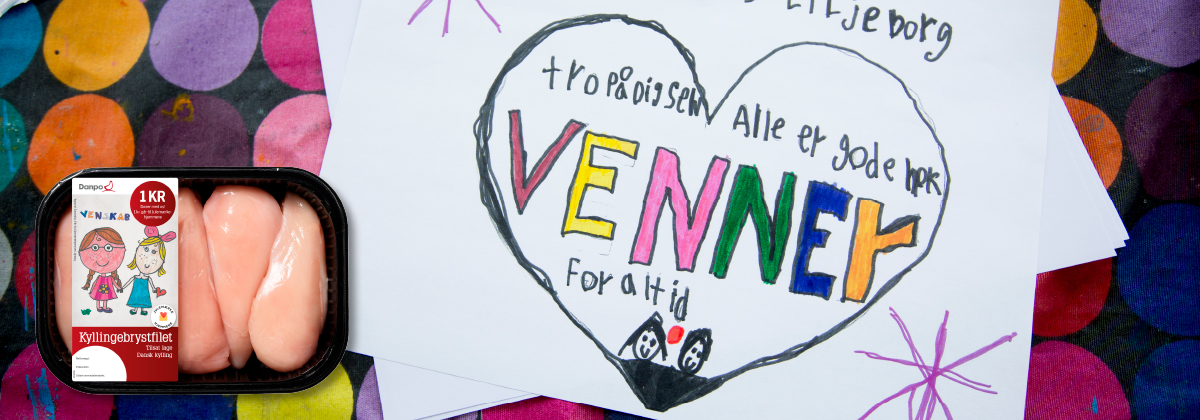 Liljeborg
tro på Dig selv
Alle er gode nok
VENNER
For altid
Danpo
1 KR
VENSKAB
Kyllingebrystfilet
Tilsat lage
Dansk kylling